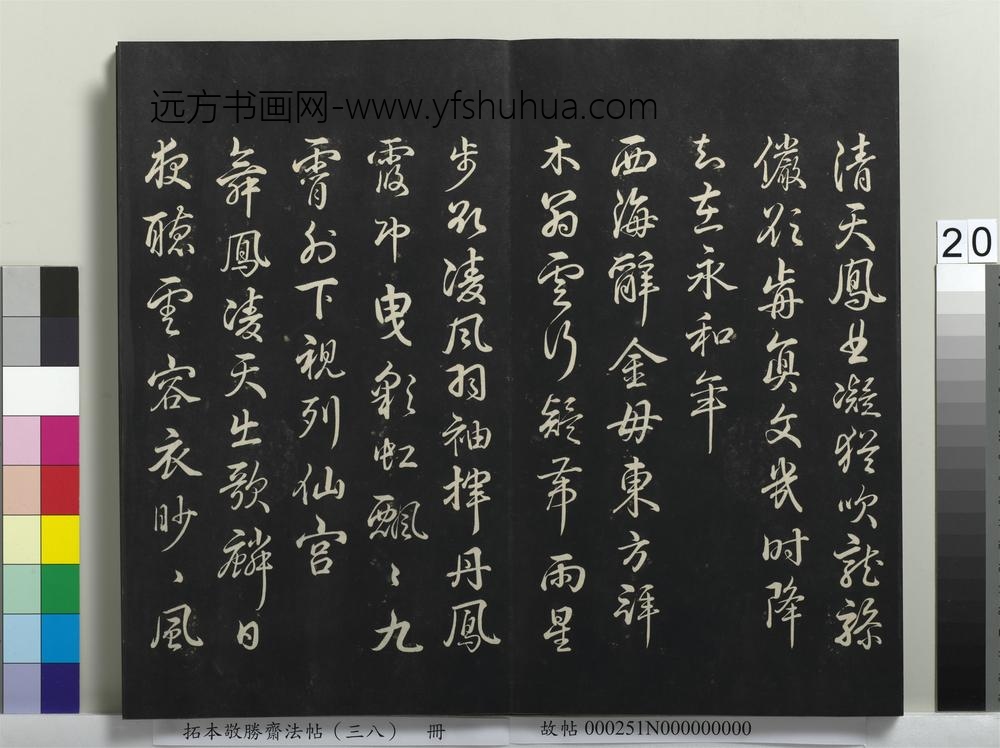 远方书画网-www.yfshuhua.com
清天鳳曲凝猶吹龍驂
儼欲前真文幾时降
知在永和年
西海辭金母東方拜
木翁雲行疑帶雨星
步欲凌风羽袖揮丹鳳
霞巾曳彩虹飄〻九
霄外下視列仙宮
舞鳳凌天出歌麟日
夜聽雲容衣眇〻風
20
拓本敬勝齋法帖（三八） 冊
故帖 000251N000000000